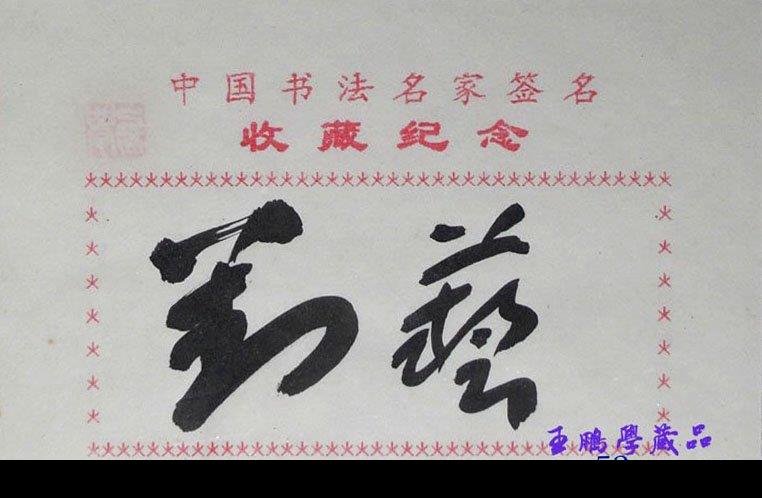 中国书法名家签名
收藏纪念
刘艺
王鹏學藏品